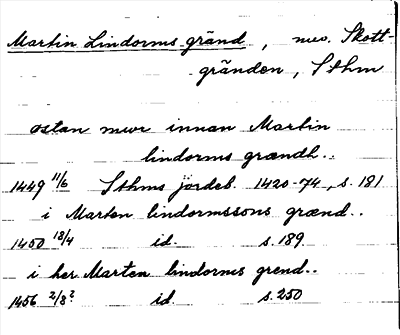 Martin Lindorms gränd, nuv. Skott-
gränden, Sthm
østan mwr innan Martin
lindorms grændh..
1449 11/6 Sthms jordeb. 1420-74, s. 181
i Marten lindormssons grænd..
1450 18/4 id. s. 189
i her Marten lindorms grend..
1456 2/8? id. s. 250